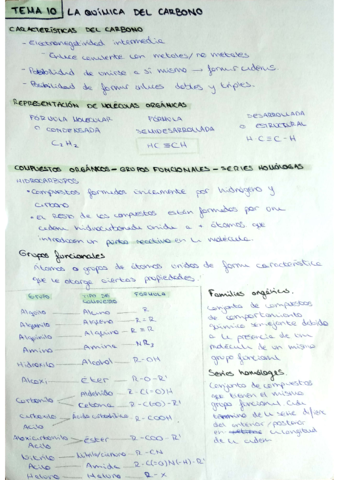 TEMA 10 LA QUÍMICA DEL CARBONO
CARACTERÍSTICAS DEL CARBONO
- Electronegatividad intermedia
Enlace covalente con metales/no metales
- Posibilidad de unirse a sí mismo → formar cadenas
- Posibilidad de formar enlaces dobles y triples.
REPRESENTACIÓN DE MOLÉCULAS ORGÁNICAS
FÓRMULA MOLECULAR O CONDENSADA
C₂H₂
FÓRMULA SEMIDESARROLLADA
HC≡CH
DESARROLLADA O ESTRUCTURAL
H-C≡C-H
COMPUESTOS ORGÁNICOS - GRUPOS FUNCIONALES - SERIES HOMÓLOGAS
HIDROCARBUROS
• Compuestos formados únicamente por hidrógeno y
carbono
• El resto de los compuestos están formados por una
cadena hidrocarbonada unida a + átomos que
introducen un punto reactivo en la molécula
Grupos funcionales
Átomos o grupos de átomos unidos de forma característica
que le otorga ciertas propiedades.
GRUPO TIPO DE FÓRMULA
Alquino R≡R
Amino Amina NR₃
Hidroxilo Alcohol R-OH
Alcoxi Éter R-O-R'
Carbonilo Aldehído R-C(=O)H
Cetona R-C(=O)-R'
R-COOH
Éster R-COO-R'
Nitrilo R-CN
Amida R-C(=O)N(-H)-R'
Halógeno R-X
Familias orgánicas.
Conjunto de compuestos
de comportamiento
químico semejante debido
a la presencia de una
molécula de un mismo
grupo funcional
Series homólogas
Conjunto de compuestos
que tienen el mismo
grupo funcional. Cada
término de la serie difiere
del anterior/posterior
en la longitud
de la cadena